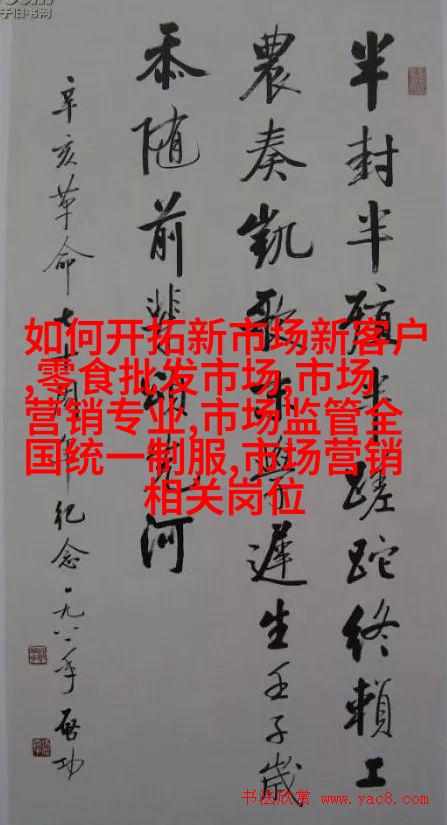 半封半殖半蹉跎终賴工
農奏凱歌末學遲生壬子歲
忝随前輩河
辛亥革命七十周年纪念一九八一年啓功
如何开拓新市场新客户
,零食批发市场,市场
营销专业,市场监管全
国统一制服,市场营销
相关岗位
书法欣赏 www.yac8.com